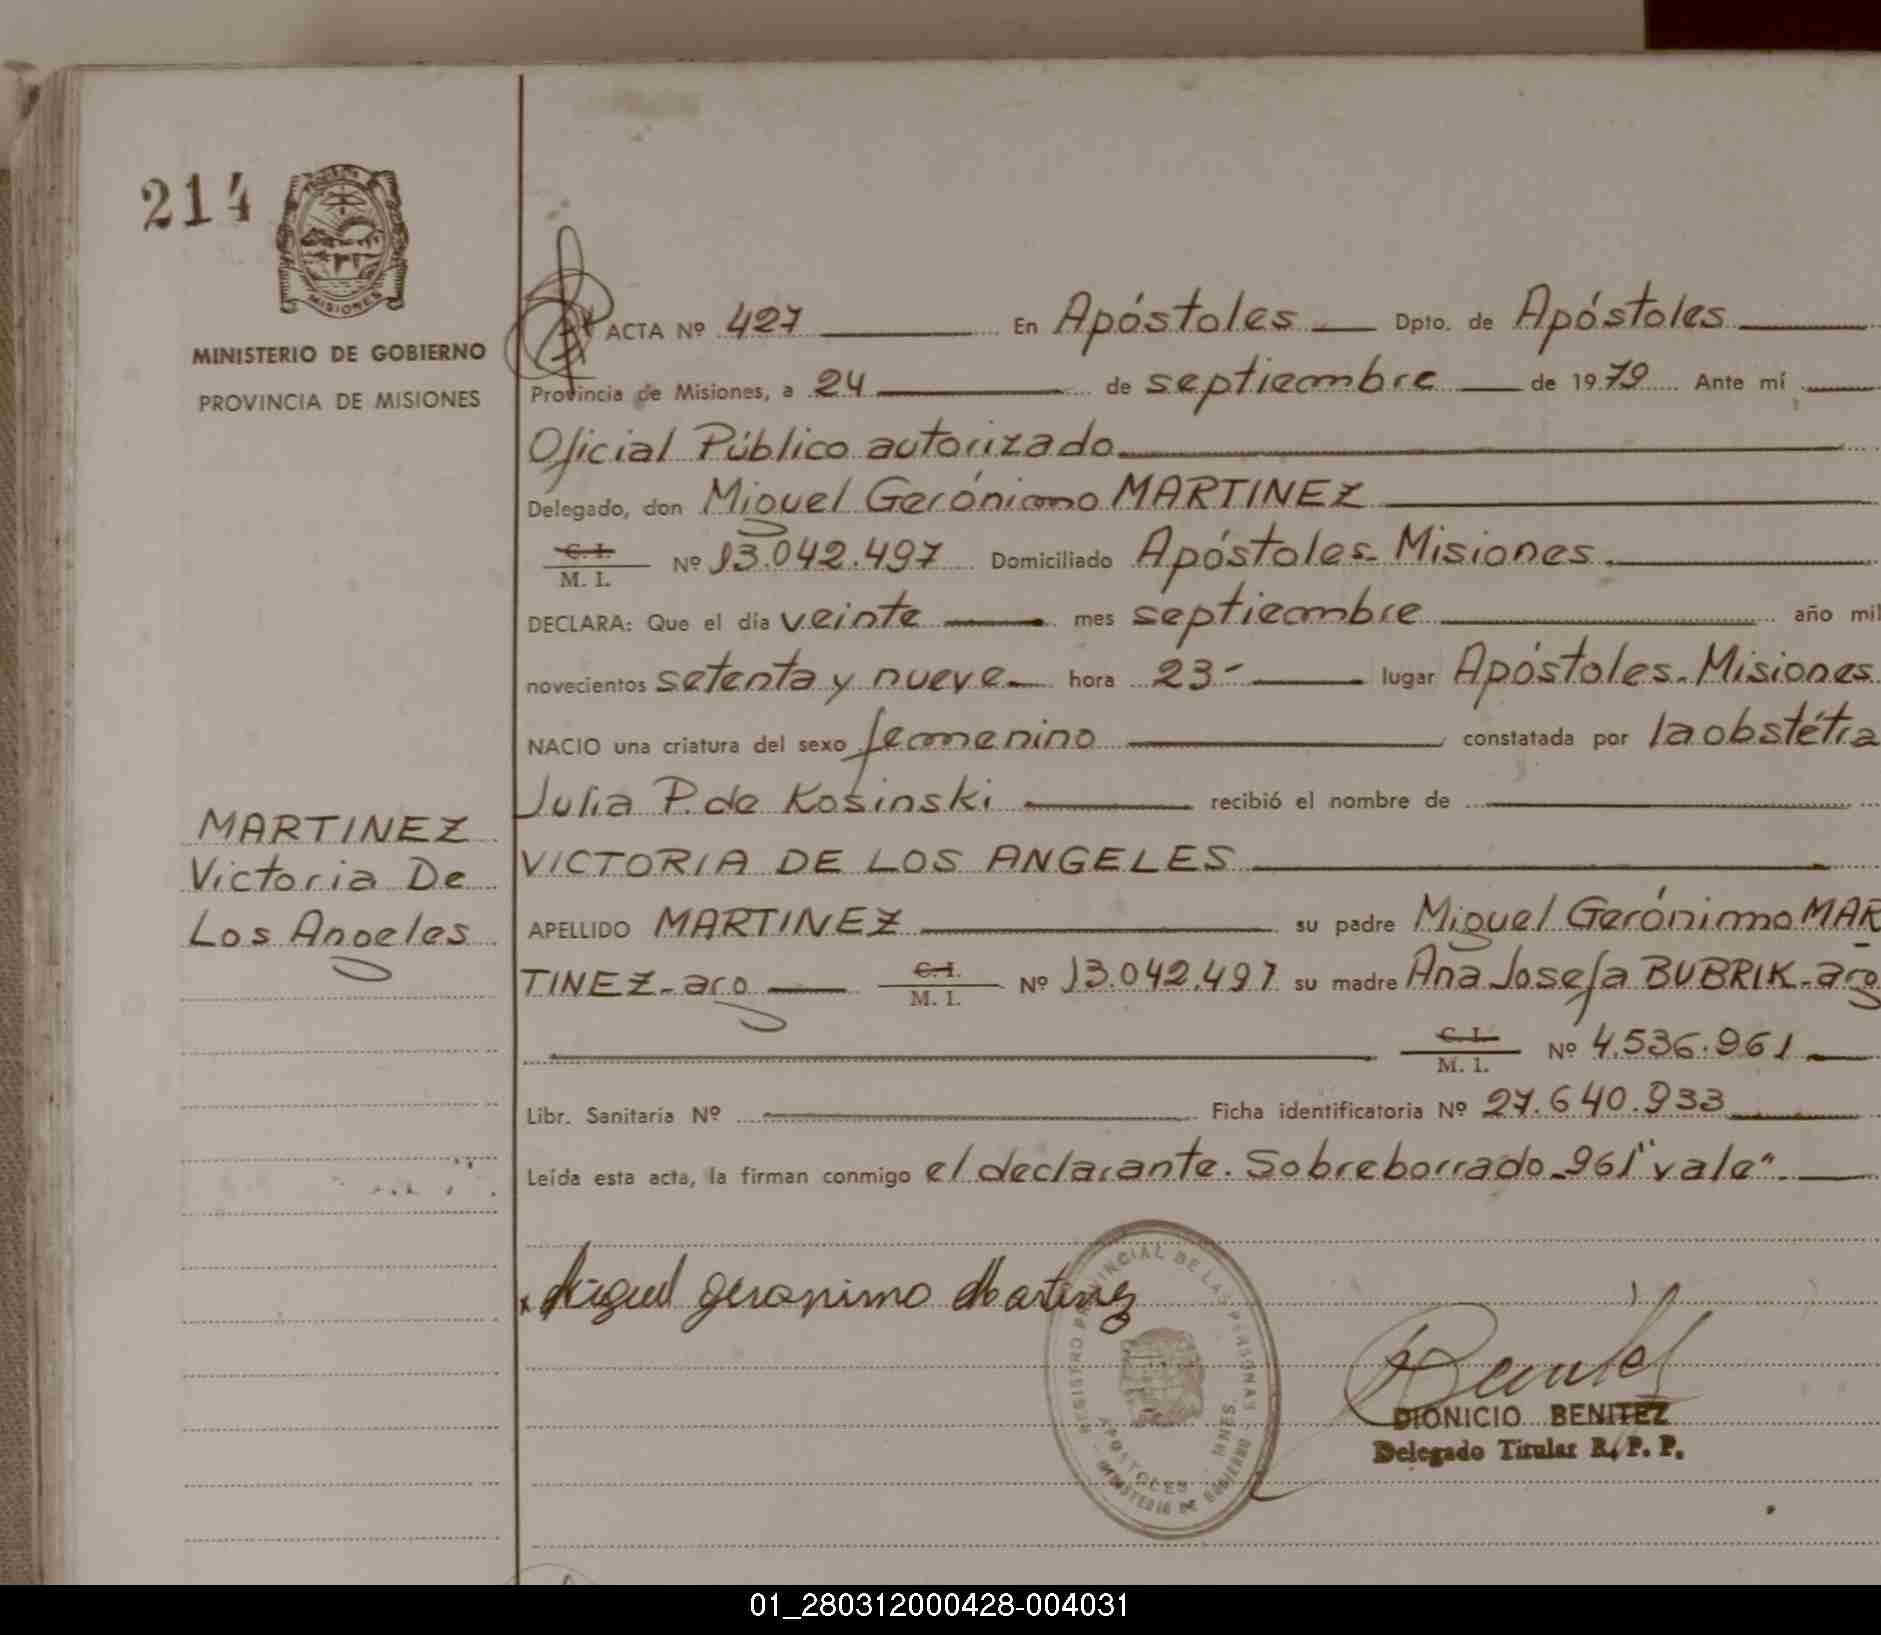 214
MISIONES
MINISTERIO DE GOBIERNO
PROVINCIA DE MISIONES
MARTINEZ
Victoria De
Los Angeles
ACTA Nº 427 En Apóstoles Dpto. de Apóstoles
Provincia de Misiones, a 24 de septiembre de 1979 Ante mí
Oficial Público autorizado
Delegado, don Miguel Gerónimo MARTINEZ
C. I.
M. I. Nº 13.042.497 Domiciliado Apóstoles-Misiones
DECLARA: Que el día veinte mes septiembre año mil
novecientos setenta y nueve hora 23- lugar Apóstoles-Misiones
NACIO una criatura del sexo femenino constatada por la obstétra
Julia P. de Kosinski recibió el nombre de
VICTORIA DE LOS ANGELES
APELLIDO MARTINEZ su padre Miguel Gerónimo MAR
TINEZ-arg C. I. M. I. Nº 13.042.497 su madre Ana Josefa BUBRIK-arg
C. I. M. I. Nº 4.536.961
Libr. Sanitaria Nº Ficha identificatoria Nº 27.640.933
Leída esta acta, la firman conmigo el declarante. Sobreborrado-961"vale"
x Miguel geronimo Martinez
REGISTRO PROVINCIAL DE LAS PERSONAS
APOSTOLES MNES.
MINISTERIO DE GOBIERNO
DIONICIO BENITEZ
Delegado Titular R. P. P.
01_280312000428-004031